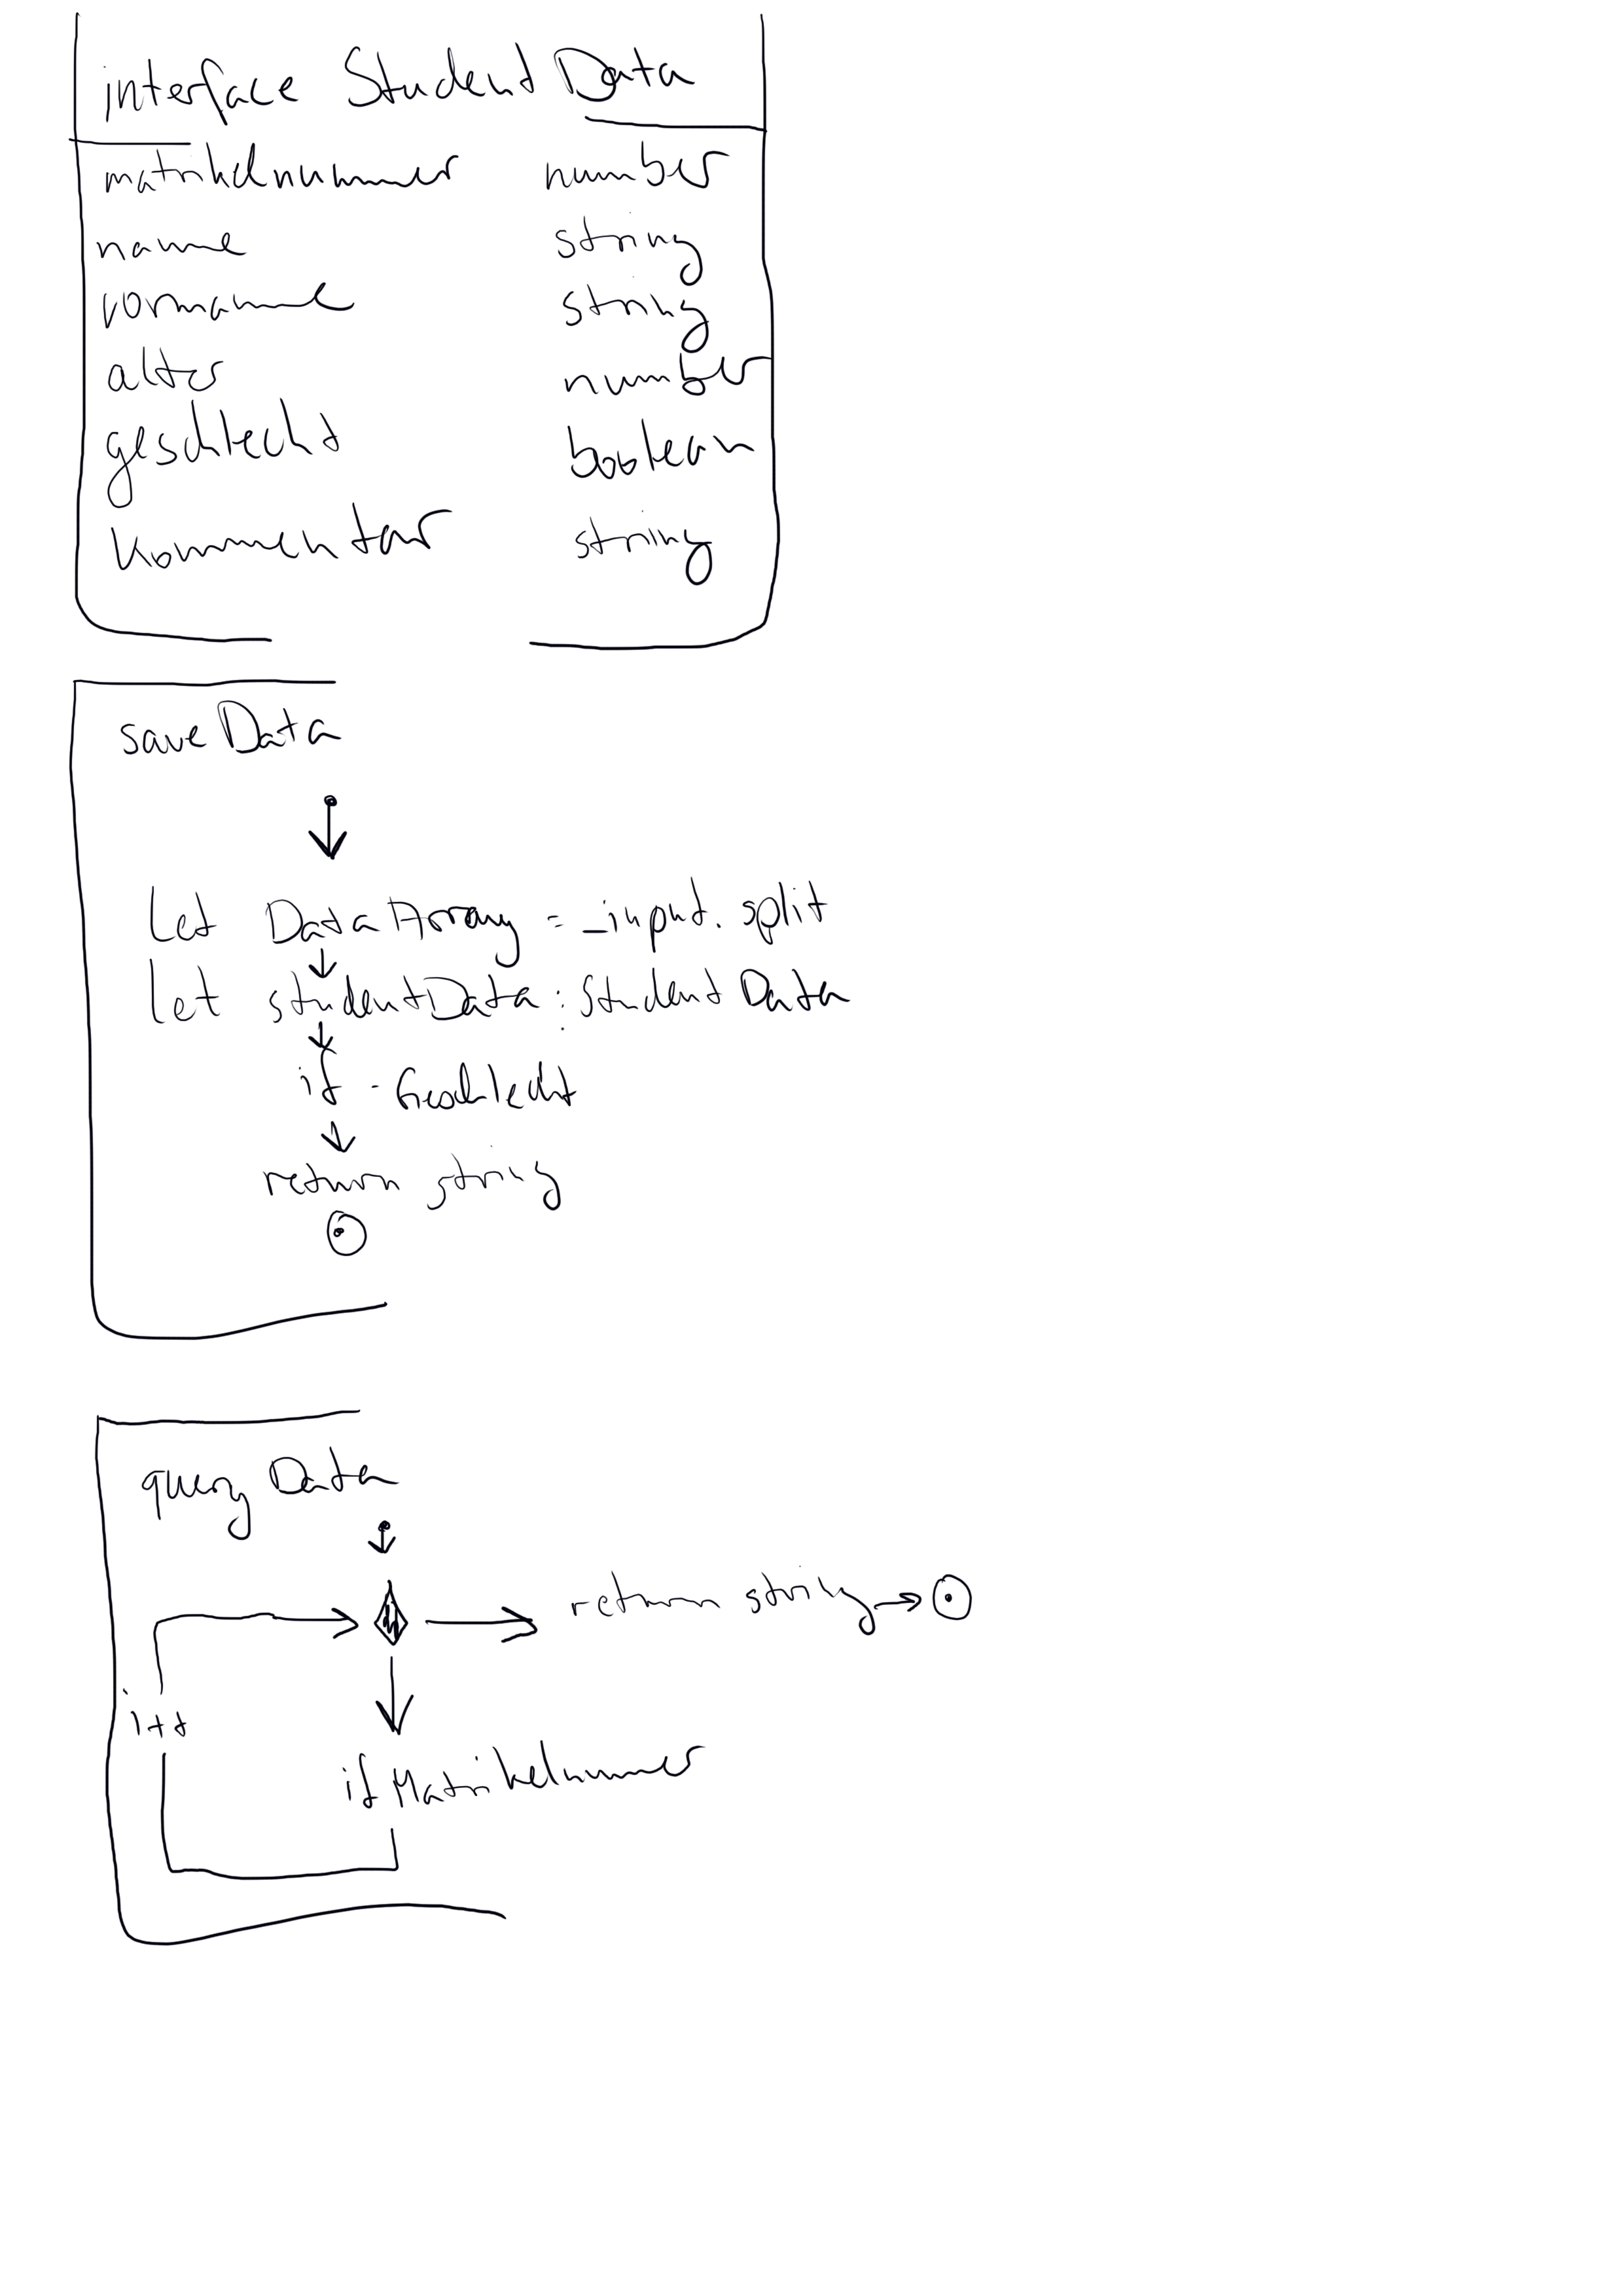 interface StudentData
matrikelnummer number
name string
vorname string
alter number
geschlecht boolean
kommentar string
saveData
let DataArray = _input.split
let studentData : StudentData
if - Geschlecht
return string
queryData
return string
i++
if Matrikelnummer